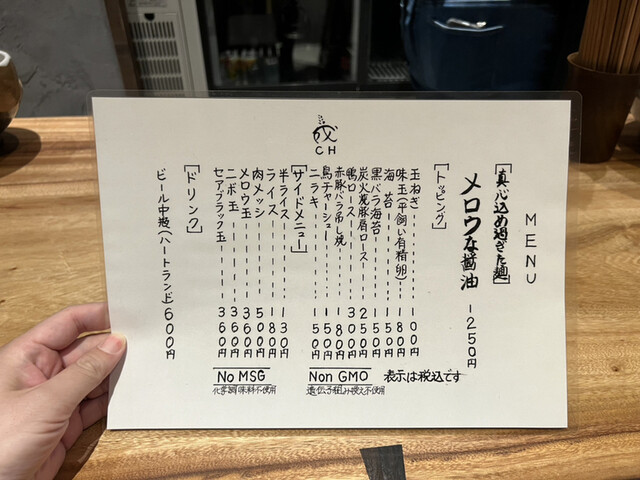 成
CH
MENU
【真心込め過ぎた麺】
メロウな醤油 1250円
【トッピング】
玉ねぎ 100円
味玉(平飼い有精卵) 180円
海苔 150円
黒バラ海苔 150円
炭火焼豚肩ロース 250円
鴨ロース 300円
赤豚バラ吊し焼 180円
鳥チャーシュー 150円
ニラキ 150円
【サイドメニュー】
半ライス 130円
ライス 180円
肉メッシ 500円
メロウ玉 360円
ニボ玉 360円
セアブラック玉 360円
【ドリンク】
ビール中瓶(ハートランド) 600円
No MSG
化学調味料不使用
Non GMO
遺伝子組み換え不使用
表示は税込です